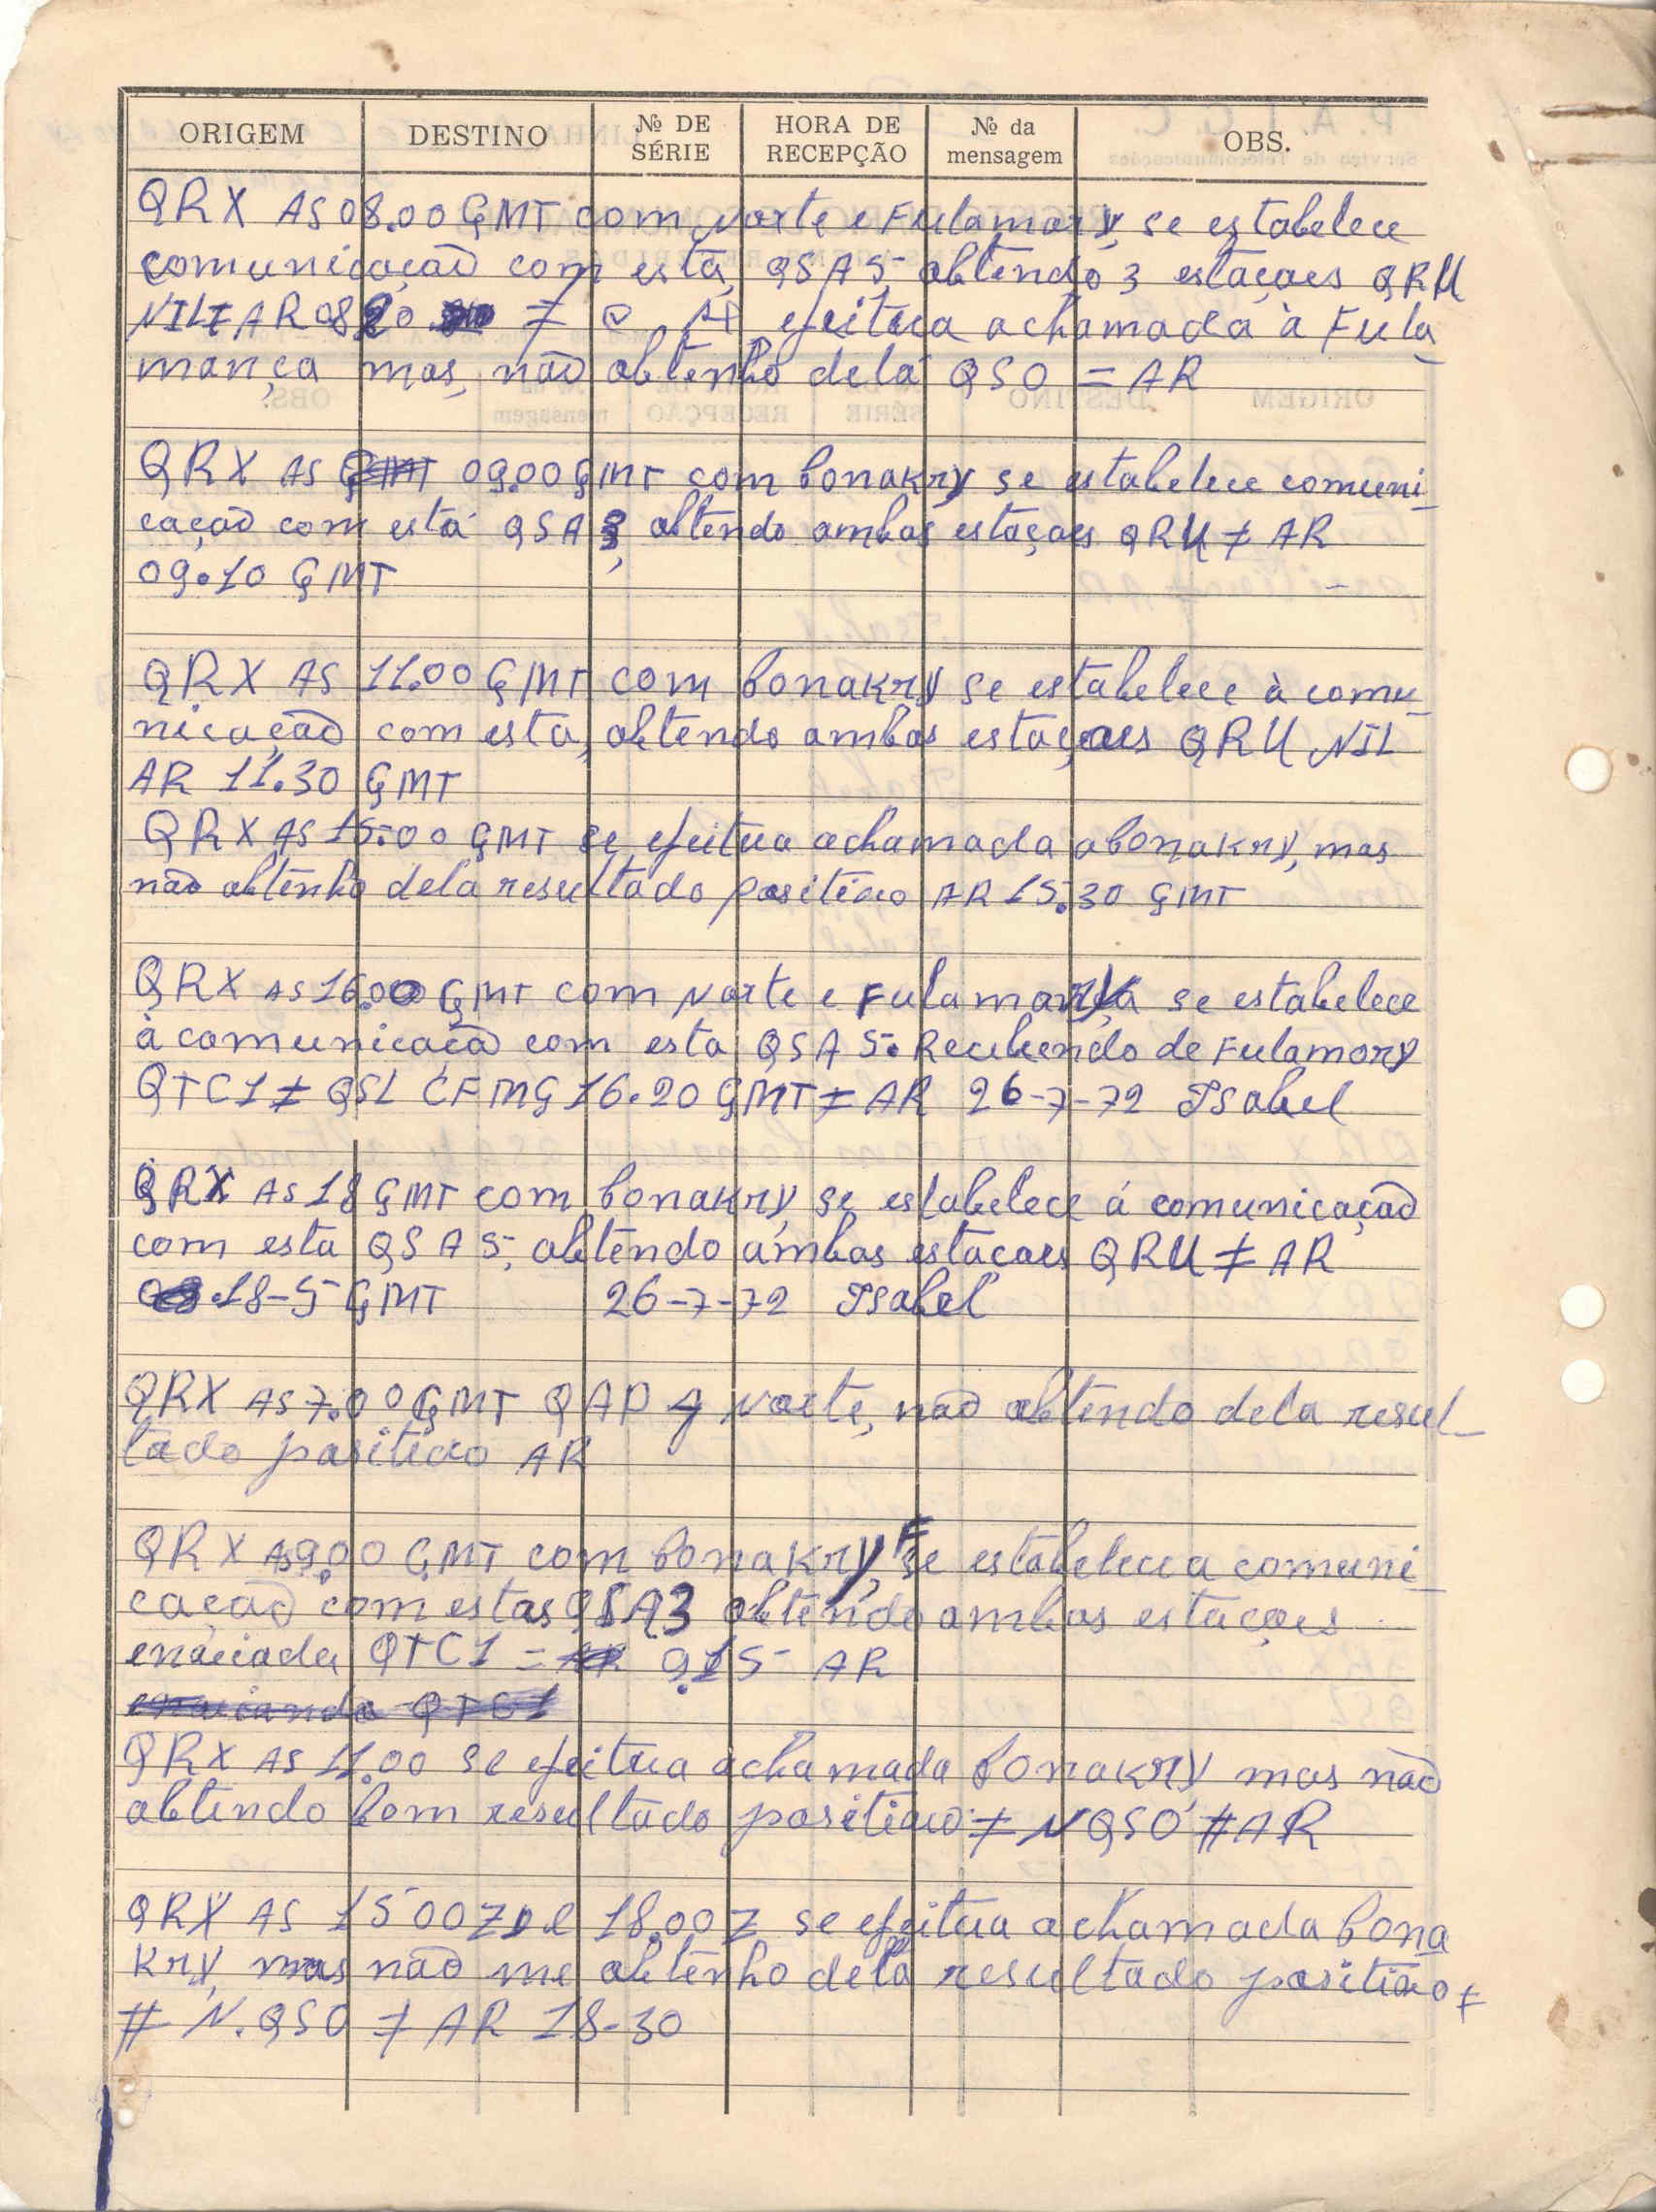 ORIGEM DESTINO Nº DE SÉRIE HORA DE RECEPÇÃO Nº da mensagem OBS.
QRX AS 08.00 GMT com Norte e Fulamory, se estabelece
comunicação com esta, QSA5, obtendo 3 estaçoes QRU
NIL ≠ AR 0820 ≠ efeitua a chamada à Fula_
mança mas, não obtenho dela QSO = AR
QRX AS GMT 09.00 GMT com Conakry se estabelece comuni_
cação com está QSA 3, obtendo ambas estaçoes QRU ≠ AR
09.10 GMT
QRX AS 11.00 GMT com Conakry se estabelece à comu_
nicação com esta, obtendo ambas estaçoes QRU NIL
AR 11.30 GMT
QRX AS 15.00 GMT se efeitua achamada a Conakry, mas
não obtenho dela resultado positivo AR 15.30 GMT
QRX AS 16.00 GMT com Norte e Fulamory se estabelece
à comunicação com esta QSA 5. Recebendo de Fulamory
QTC1 ≠ QSL CFMG 16.20 GMT ≠ AR 26-7-72 Isabel
QRX AS 18 GMT com Conakry, se estabelece á comunicação
com esta QSA 5, obtendo ambas estacoes QRU ≠ AR
18-5 GMT 26-7-72 Isabel
QRX AS 7.00 GMT QAP 4 Norte, não obtendo dela resul_
tado positivo AR
QRX AS 9.00 GMT com Conakry, se estabelece a comuni_
cação com estas QSA3 obtendo ambas estaçoes
enviada QTC1 = AR 9.15 AR
enviando QTC1
QRX AS 11.00 se efeitua achamada Conakry mas não
obtendo bom resultado positivo ≠ N QSO # AR
QRX AS 1500Z e 18.00Z se efeitua a chamada Cona
kry, mas não me obtenho dela resultado positivo ≠
# N. QSO ≠ AR 18-30